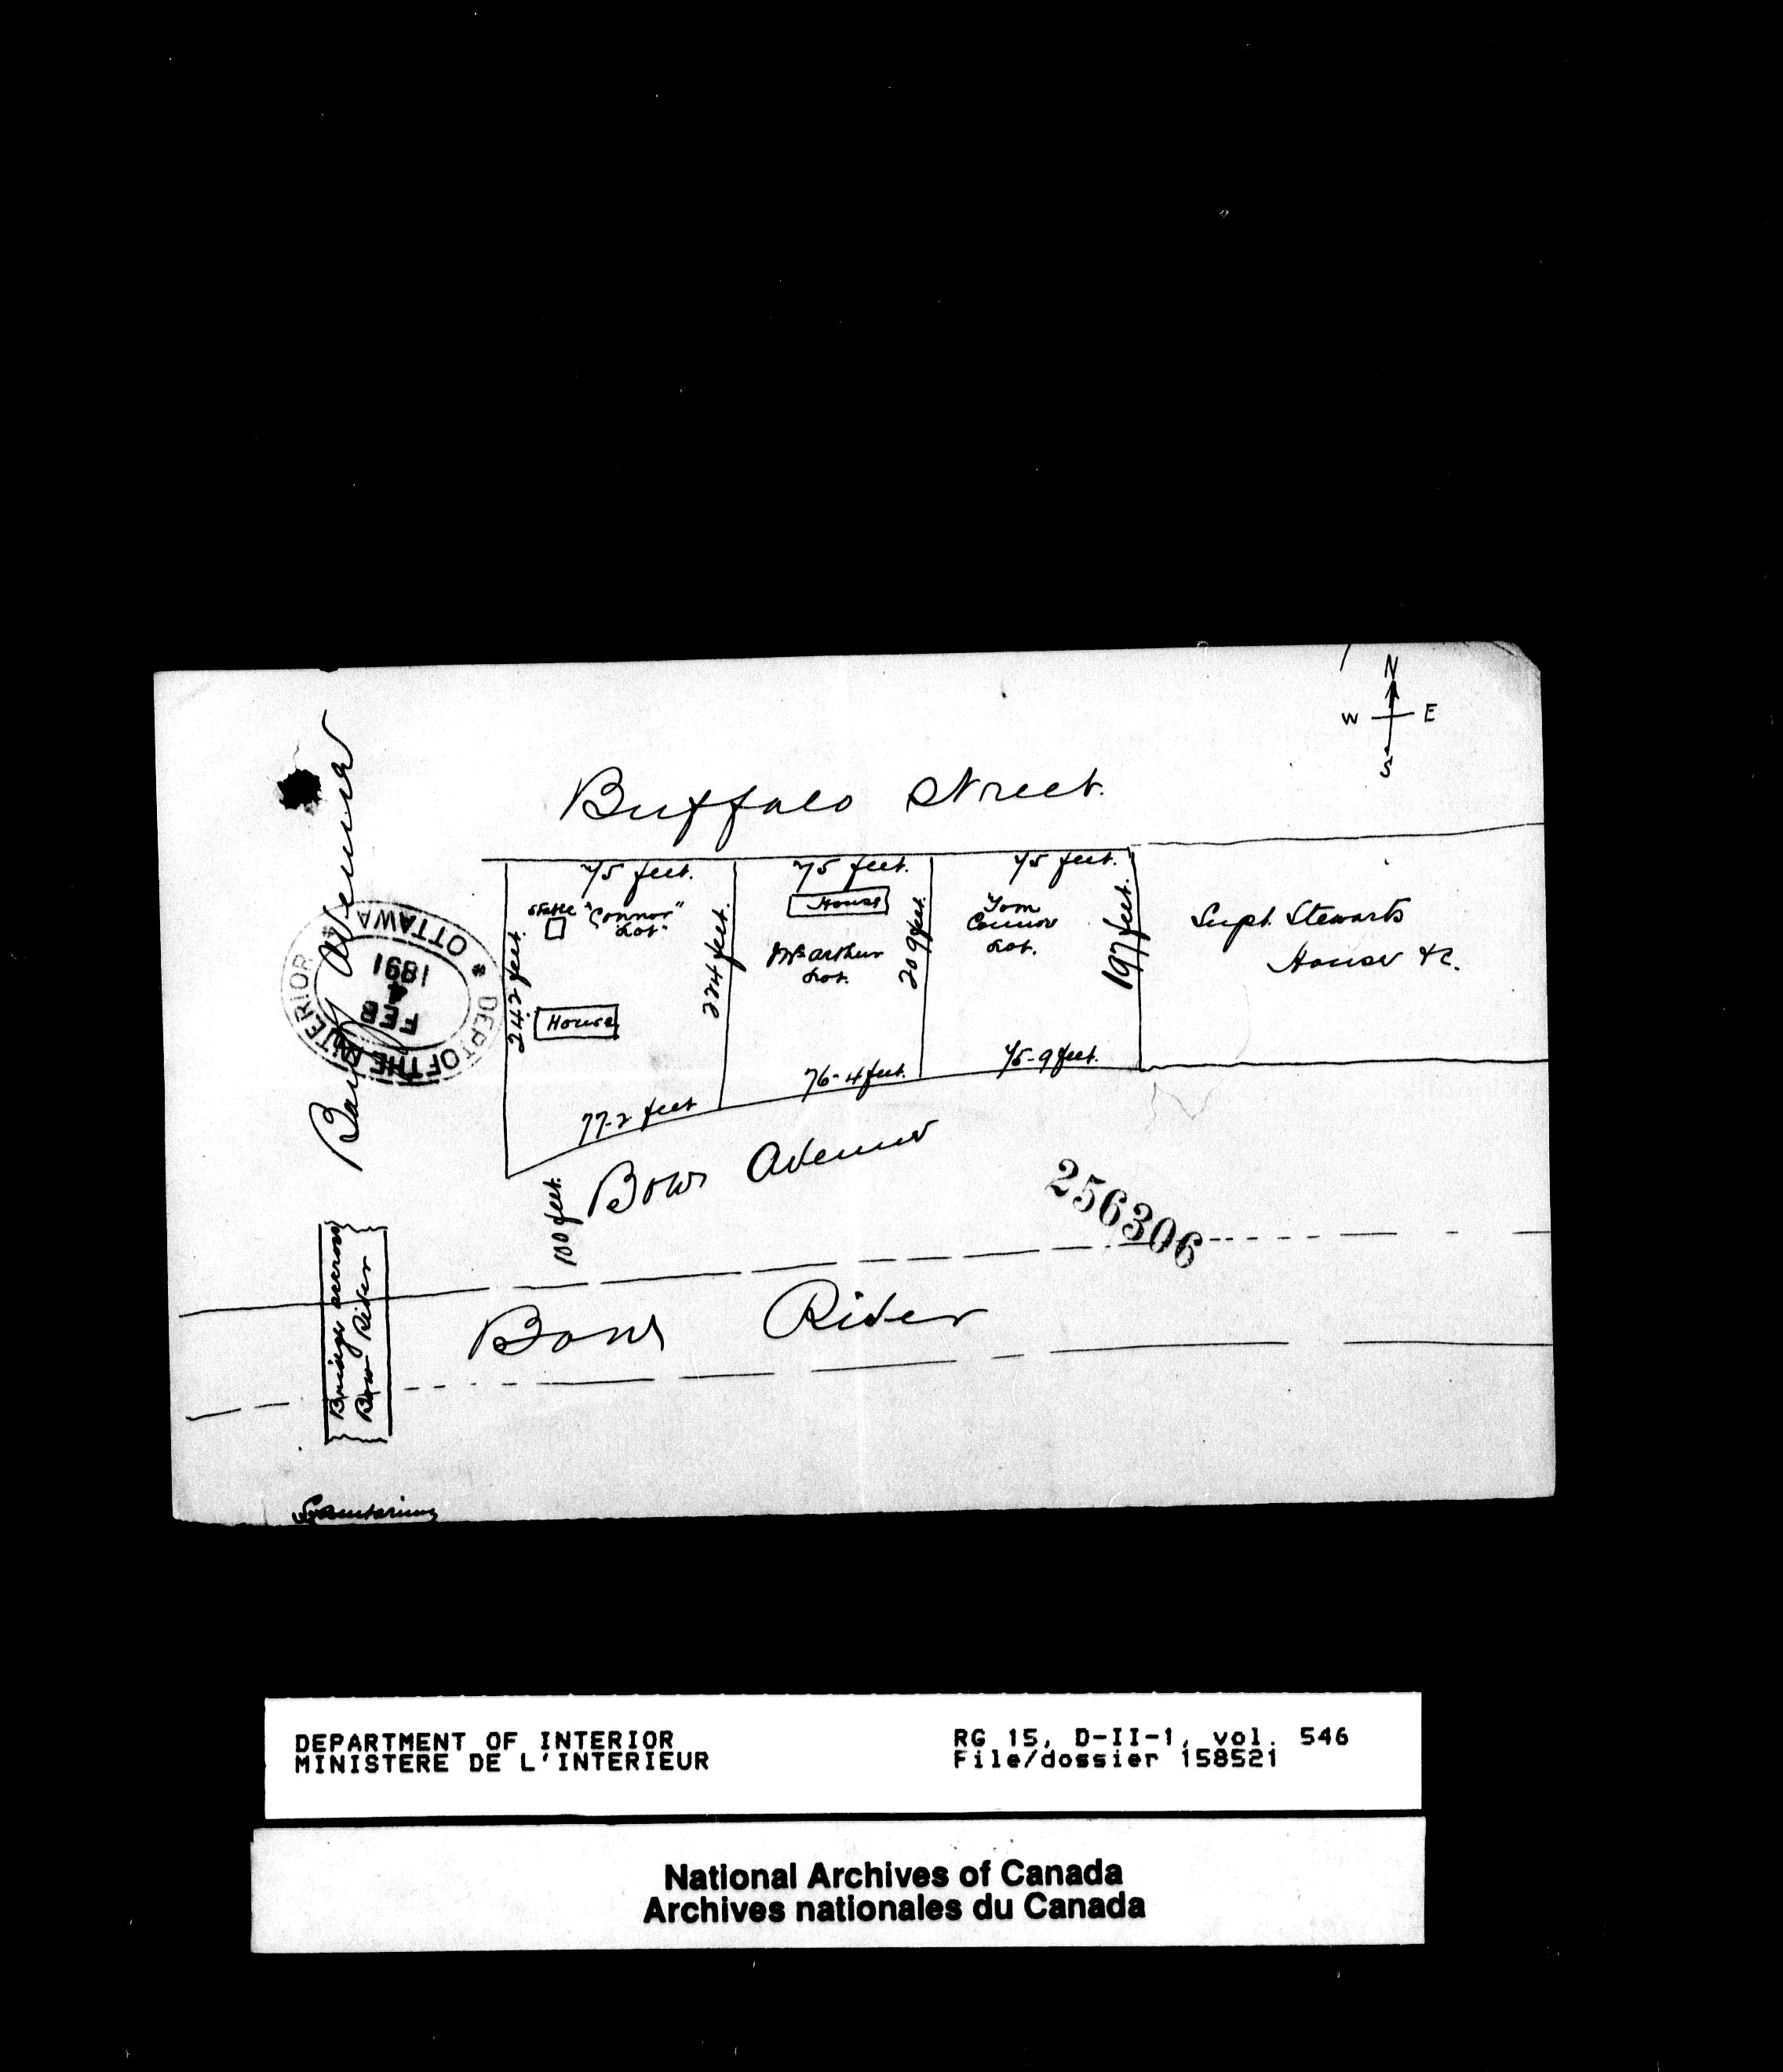 N
W E
S
Buffalo Street.
75 feet. 75 feet. 75 feet.
Stable
"Connor"
Lot"
House
242 feet.
224 feet.
House
McArthur
Lot.
209 feet.
Tom
Connor
Lot.
197 feet.
Supt. Stewarts
House &c.
77-2 feet 76-4 feet. 75-9 feet.
Banff Avenue
DEPT OF THE INTERIOR * OTTAWA *
FEB
4
1891
Bow Avenue
100 feet.
256306
Bow River
Bridge accross
Bow River
Sanitarium
DEPARTMENT OF INTERIOR
MINISTERE DE L'INTERIEUR
RG 15, D-II-1, vol. 546
File/dossier 158521
National Archives of Canada
Archives nationales du Canada